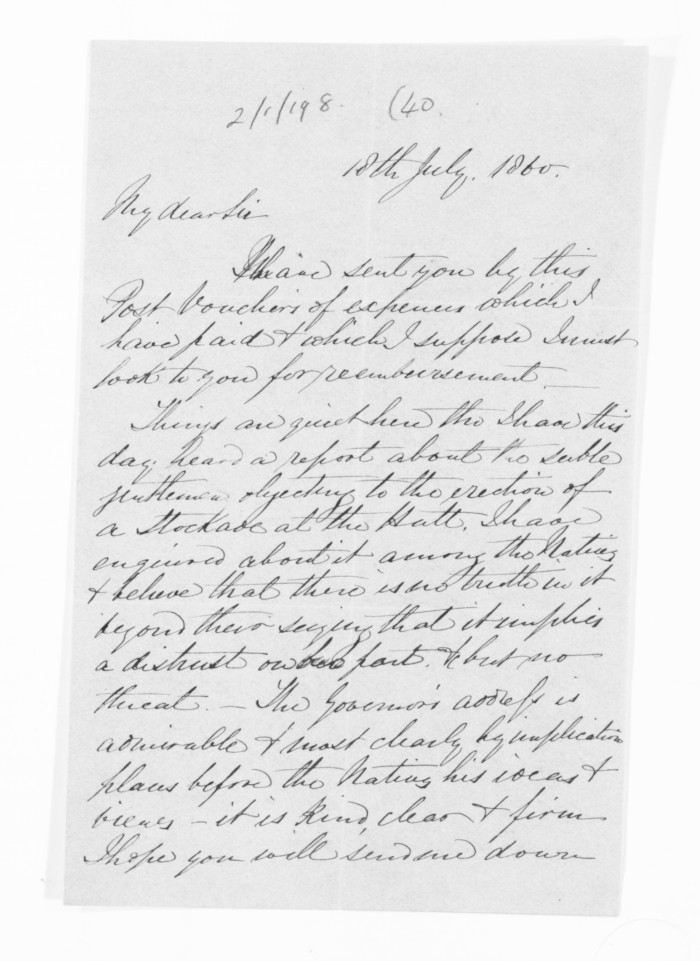 2/1/198. (40.
18th July. 1860.
My dear Sir
I have sent you by this
Post Vouchers of expences which I
have paid & which I suppose I must
look to you for reembursement —
Things are quiet here tho I have this
day heard a report about the sable
gentlemen objecting to the erection of
a Stockade at the Hutt. I have
enquired about it among the Natives
& believe that there is no truth in it
beyond their saying that it implies
a distrust on our part. & but no
threat. — The Governor's address is
admirable & most clearly by implication
places before the Natives his ideas &
views — it is kind, clear & firm
I hope you will send me down